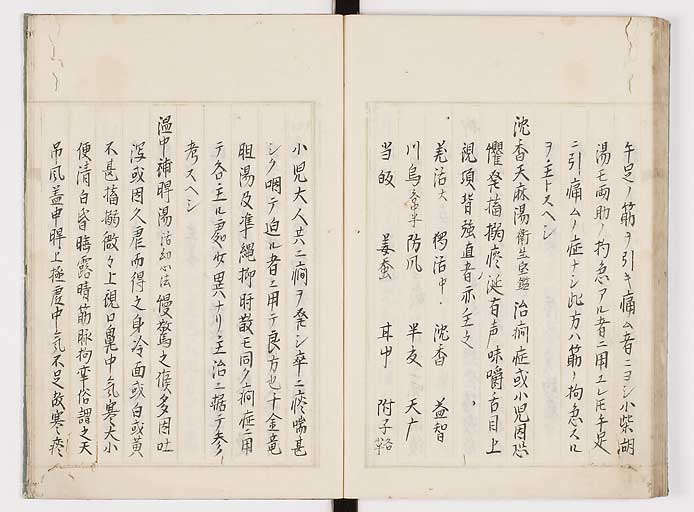 手足ノ筋ヲ引キ痛ム者ニヨシ小柴胡
湯モ両肋ノ拘急アル者ニ用ユレモ手足
ニ引痛ムノ症ナシ此方ハ筋ノ拘急スル
ヲ主トスヘシ
沈香天麻湯 衛生宝鑑 治痫症或小児因恐
懼発搐搦痰涎有声味嚼舌目上
視項背強直者亦主之
羌活大 獨活中 沈香 益智
川烏各等半 防風 半夏 天广
当皈 姜蚕 耳中 附子各等
小児大人共ニ痫ヲ発シ卒ニ痰喘甚
シク咽テ迫ル者ニ用テ良方也千金竜
胆湯及準縄抑肝散モ同ク痫症ニ用
テ各主ル處少異ハナリ主治ニ据テ参
考スヘシ
温中補脾湯 活幼心法 慢驚之候多因吐
瀉或因久瘧而得之身冷面或白或黄
不甚搐搦微々上視口鼻中気寒大小
便清白昏睡露睛筋脉拘挛俗謂之天
吊風盖中脾上極虚中気不足故寒痰